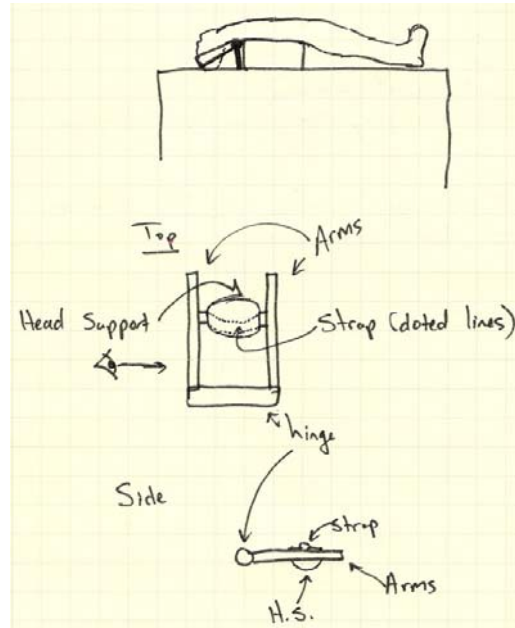 Top
Arms
Head Support
Strap (doted lines)
hinge
Side
Strap
Arms
H.S.